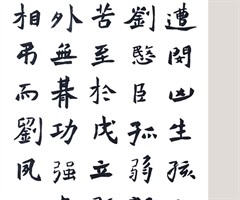 遭閔凶生孩
劉愍臣孤弱
苦至於成立
外無朞功强
相吊而劉夙